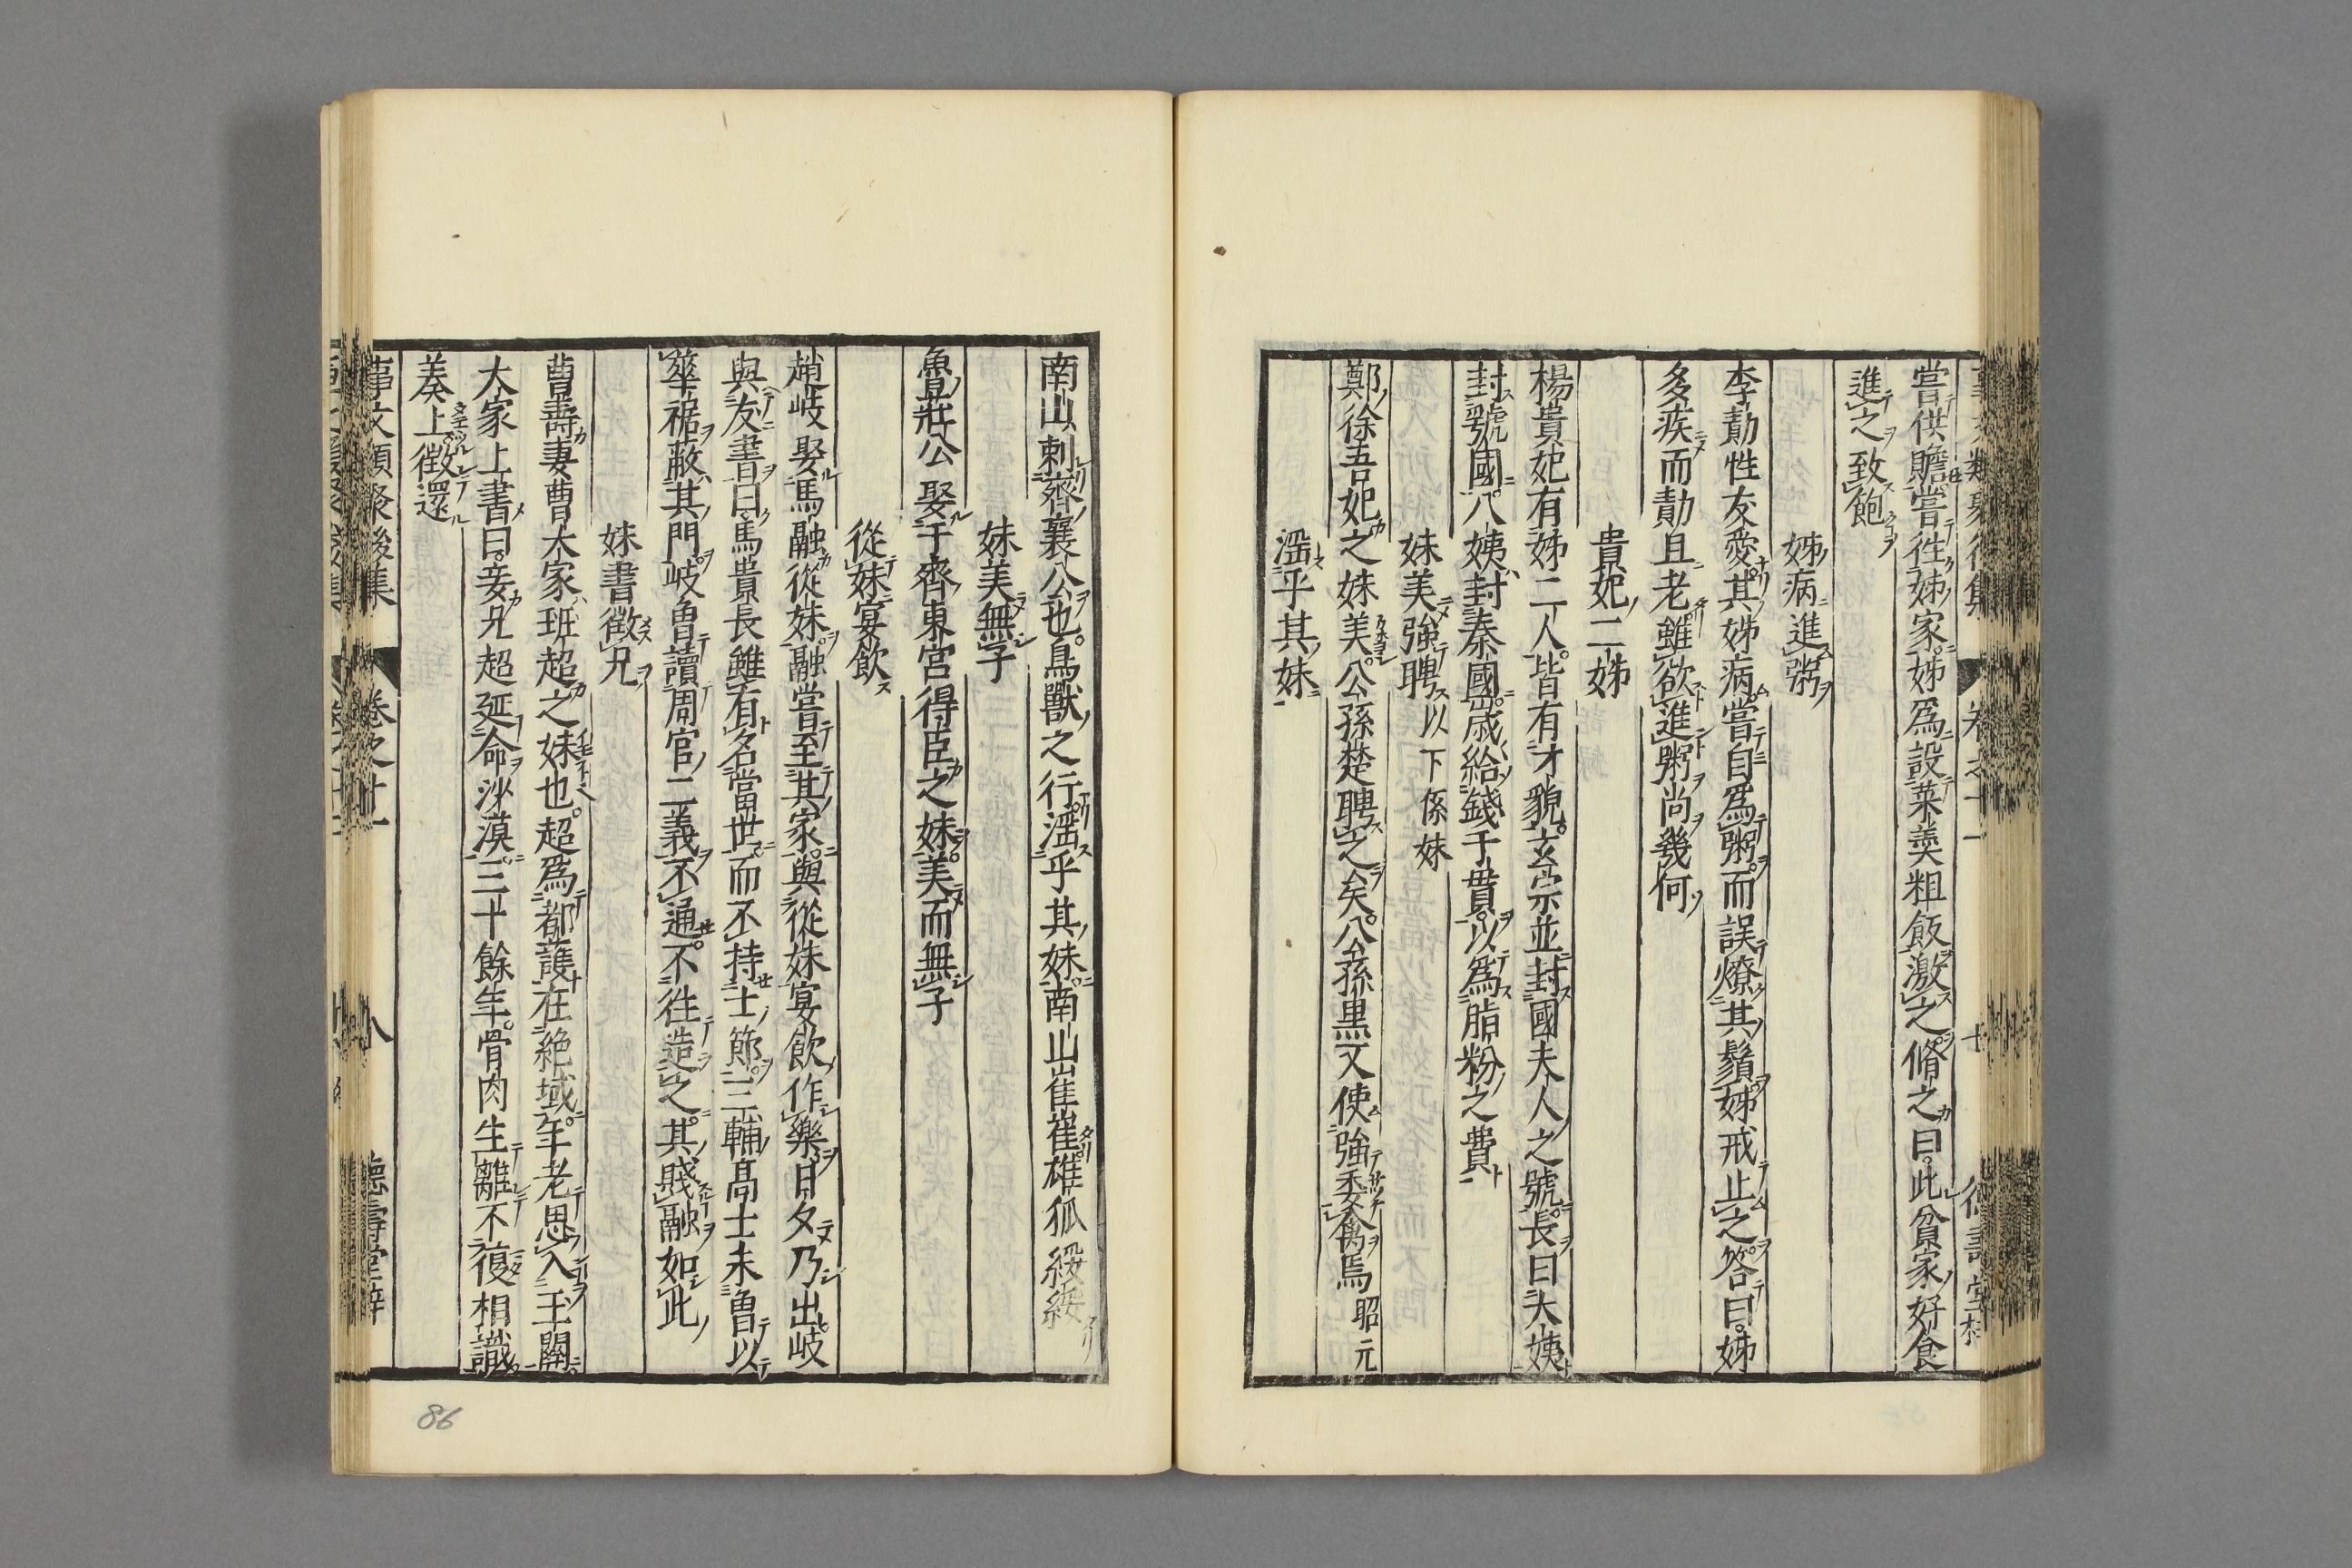 嘗供贍嘗徃姊家姊爲設菜羹粗飯激之脩之曰此貧家好食
進之致飽
姊病進粥
李勣性友愛其姊病嘗自爲粥而誤燎其鬚姊戒止之答曰姊
多疾而勣且老雖欲進粥尚幾何
貴妃二姊
楊貴妃有姊二人皆有才貌玄宗並封國夫人之號長曰大姨
封號國八姨封秦國歳給錢千貫以爲脂粉之費
妹美強聘以下係妹
鄭徐吾妃之妹美公孫楚聘之矣公孫黒又使強委禽焉昭元
滛乎其妹
南山刺齊襄公也鳥獸之行滛乎其妹南山崔崔雄狐綏綏
妹美無子
魯莊公娶于齊東宮得臣之妹美而無子
從妹宴飲
趙岐娶馬融從妹融嘗至其家與從妹宴飲作樂日夕乃出岐
與友書曰馬貴長雖有名當世而不持士節三輔高士未曽以
華裾蔽其門岐曽讀周官二義不通不徃造之其賤融如此
妹書徴兄
曹壽妻曹大家班超之妹也超爲都護在絶域年老思入玉關
大家上書曰妾兄超延命沙漠三十餘年骨肉生離不復相識
奏上徴還
事文類聚後集 卷之廿一 八
86